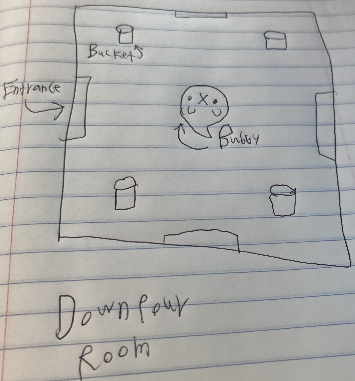 Buckets
Entrance
Bubby
Downpour
Room